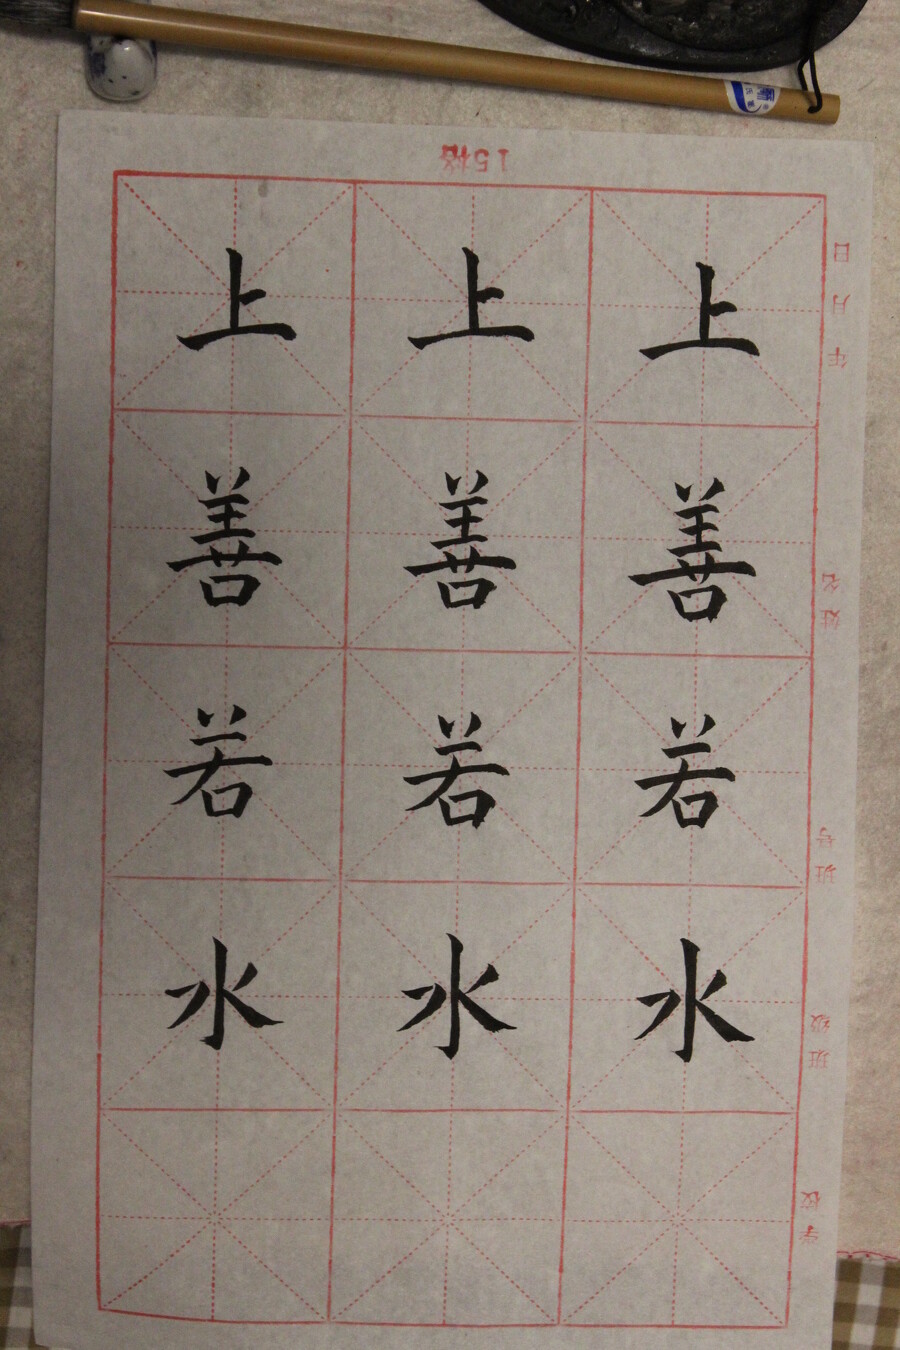 15格
上善若水
上善若水
上善若水
学校 班级 班号 姓名 年 月 日